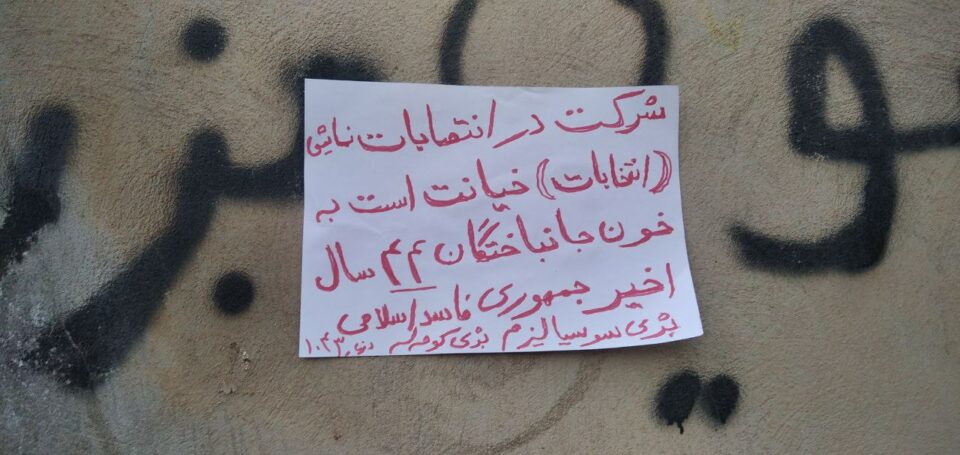 شرکت در انتصابات نمایشی
((انتخابات)) خیانت است به
خون جانباختگان ۴۴ سال
اخیر جمهوری فاسد اسلامی
بژی سوسیالیزم بژی کومه‌له